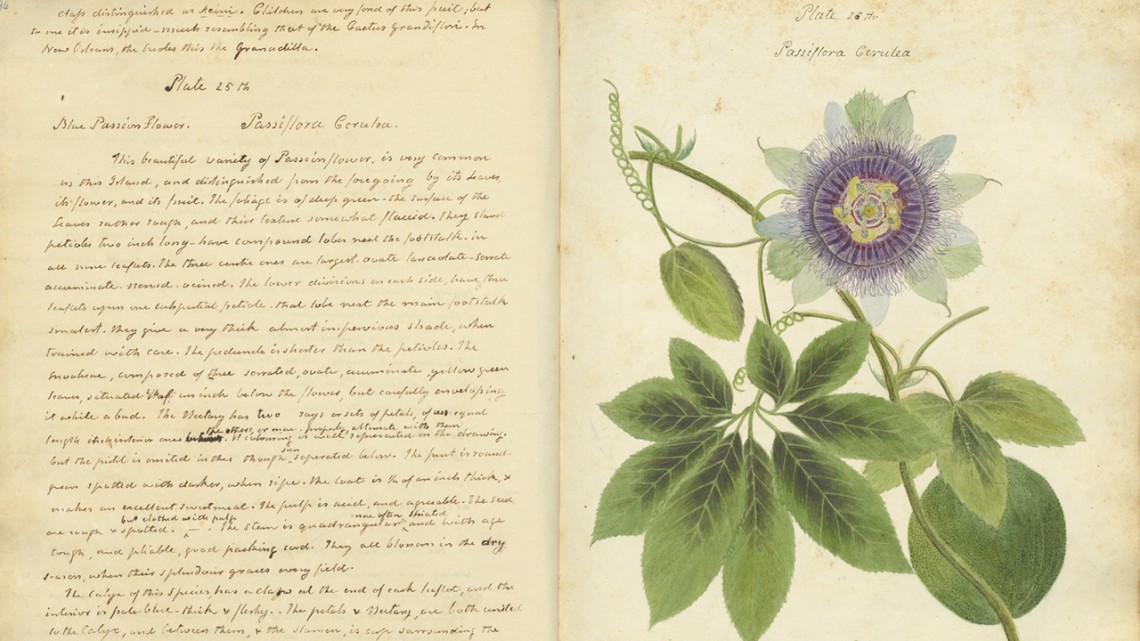 class distinguished as Meini. Children are very fond of this fruit, but
to me it is insipid - much resembling that of the Cactus Grandiflori. In
New Orleans, the Creoles this the Granadilla.
Plate 25th
Blue Passion Flower. Passiflora Cerulea.
This beautiful variety of Passion flower, is very common
in this Island, and distinguished from the foregoing by its leaves,
its flower, and its fruit. The foliage is of deep green - the surface of the
leaves rather rough, and their texture somewhat flaccid. They stand
petioles two inch long - have compound lobes near the footstalk. in
all nine leaflets. The three centre ones are largest. ovate lanceolate - serrate
accuminate - veined. The lower divisions on each side, have three
leaflets upon one subpartial petiole - that lobe next the main footstalk
smallest. They give a very thick almost impervious shade, when
trained with care. The peduncle is shorter than the petioles. The
Involucre, composed of three serrated, ovate, accuminate, yellow green
leaves, situated half an inch below the flower, but carefully enveloping
it while a bud. The Nectary has two rays or sets of petals, of an equal
the others, or more properly, alternate with them
length its interior ones. It colouring is well represented in the drawing.
but the pistil is omited in this though seperated below. The fruit is round
green spotted with darker, when ripe. The coat is ¼ of an inch thick, &
makes an excellent sweetmeat. The pulp is acid, and agreeable. The seed
but clothed with pulp
now often striated
are rough & spotted. The stem is quadrangular and with age
tough, and pliable, good packing cord. They all blossom in the dry
season, when their splendour graces every field.
The Calyx of this species has a claw at the end of each leaflet, and the
interior is pale blue - thick & fleshy. The petals & Nectary are both united
to the Calyx, and between them, & the stamen, is cup surrounding the
Plate 25th
Passiflora Cerulea